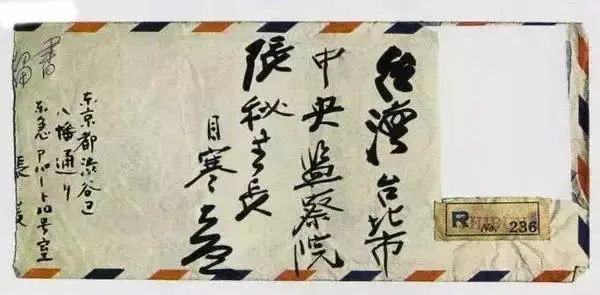 台灣台北市
中央監察院
張秘書長
目寒
東京都渋谷区
八幡通り
東急アパート10号室
張
書
R
No. 236